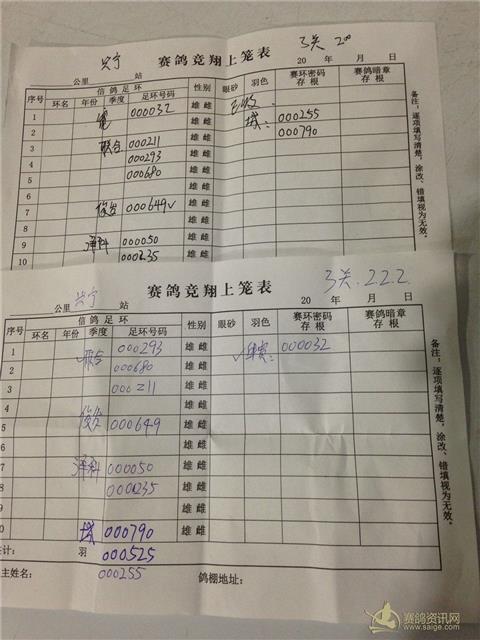 兴宁 赛鸽竞翔上笼表 3关 200
公里 站 20 年 月 日
序号 信鸽足环 性别 眼砂 羽色 赛环密码存根 赛鸽暗章存根
环名 年份 季度 足环号码
1 000032 雄 雌
2 雄 雌 000255
3 联合 000211 雄 雌 000790
4 000293 雄 雌
5 000680 雄 雌
6 雄 雌
7 俊発 000649√ 雄 雌
8 雄 雌
9 泽科 000050 雄 雌
10 000235 雄 雌
备注：逐项填写清楚，涂改、错填视为无效。
兴宁 赛鸽竞翔上笼表 3关 2.2.2.
公里 站 20 年 月 日
序号 信鸽足环 性别 眼砂 羽色 赛环密码存根 赛鸽暗章存根
环名 年份 季度 足环号码
1 联合 000293 雄 雌 √ 000032
2 000680 雄 雌
3 000211 雄 雌
4 雄 雌
5 000649 雄 雌
6 雄 雌
7 泽科 000050 雄 雌
8 000235 雄 雌
9 雄 雌
0 000790 雄 雌
计： 羽 000525
主姓名： 000255 鸽棚地址：
备注：逐项填写清楚，涂改、错填视为无效。
赛鸽资讯网
www.saige.com